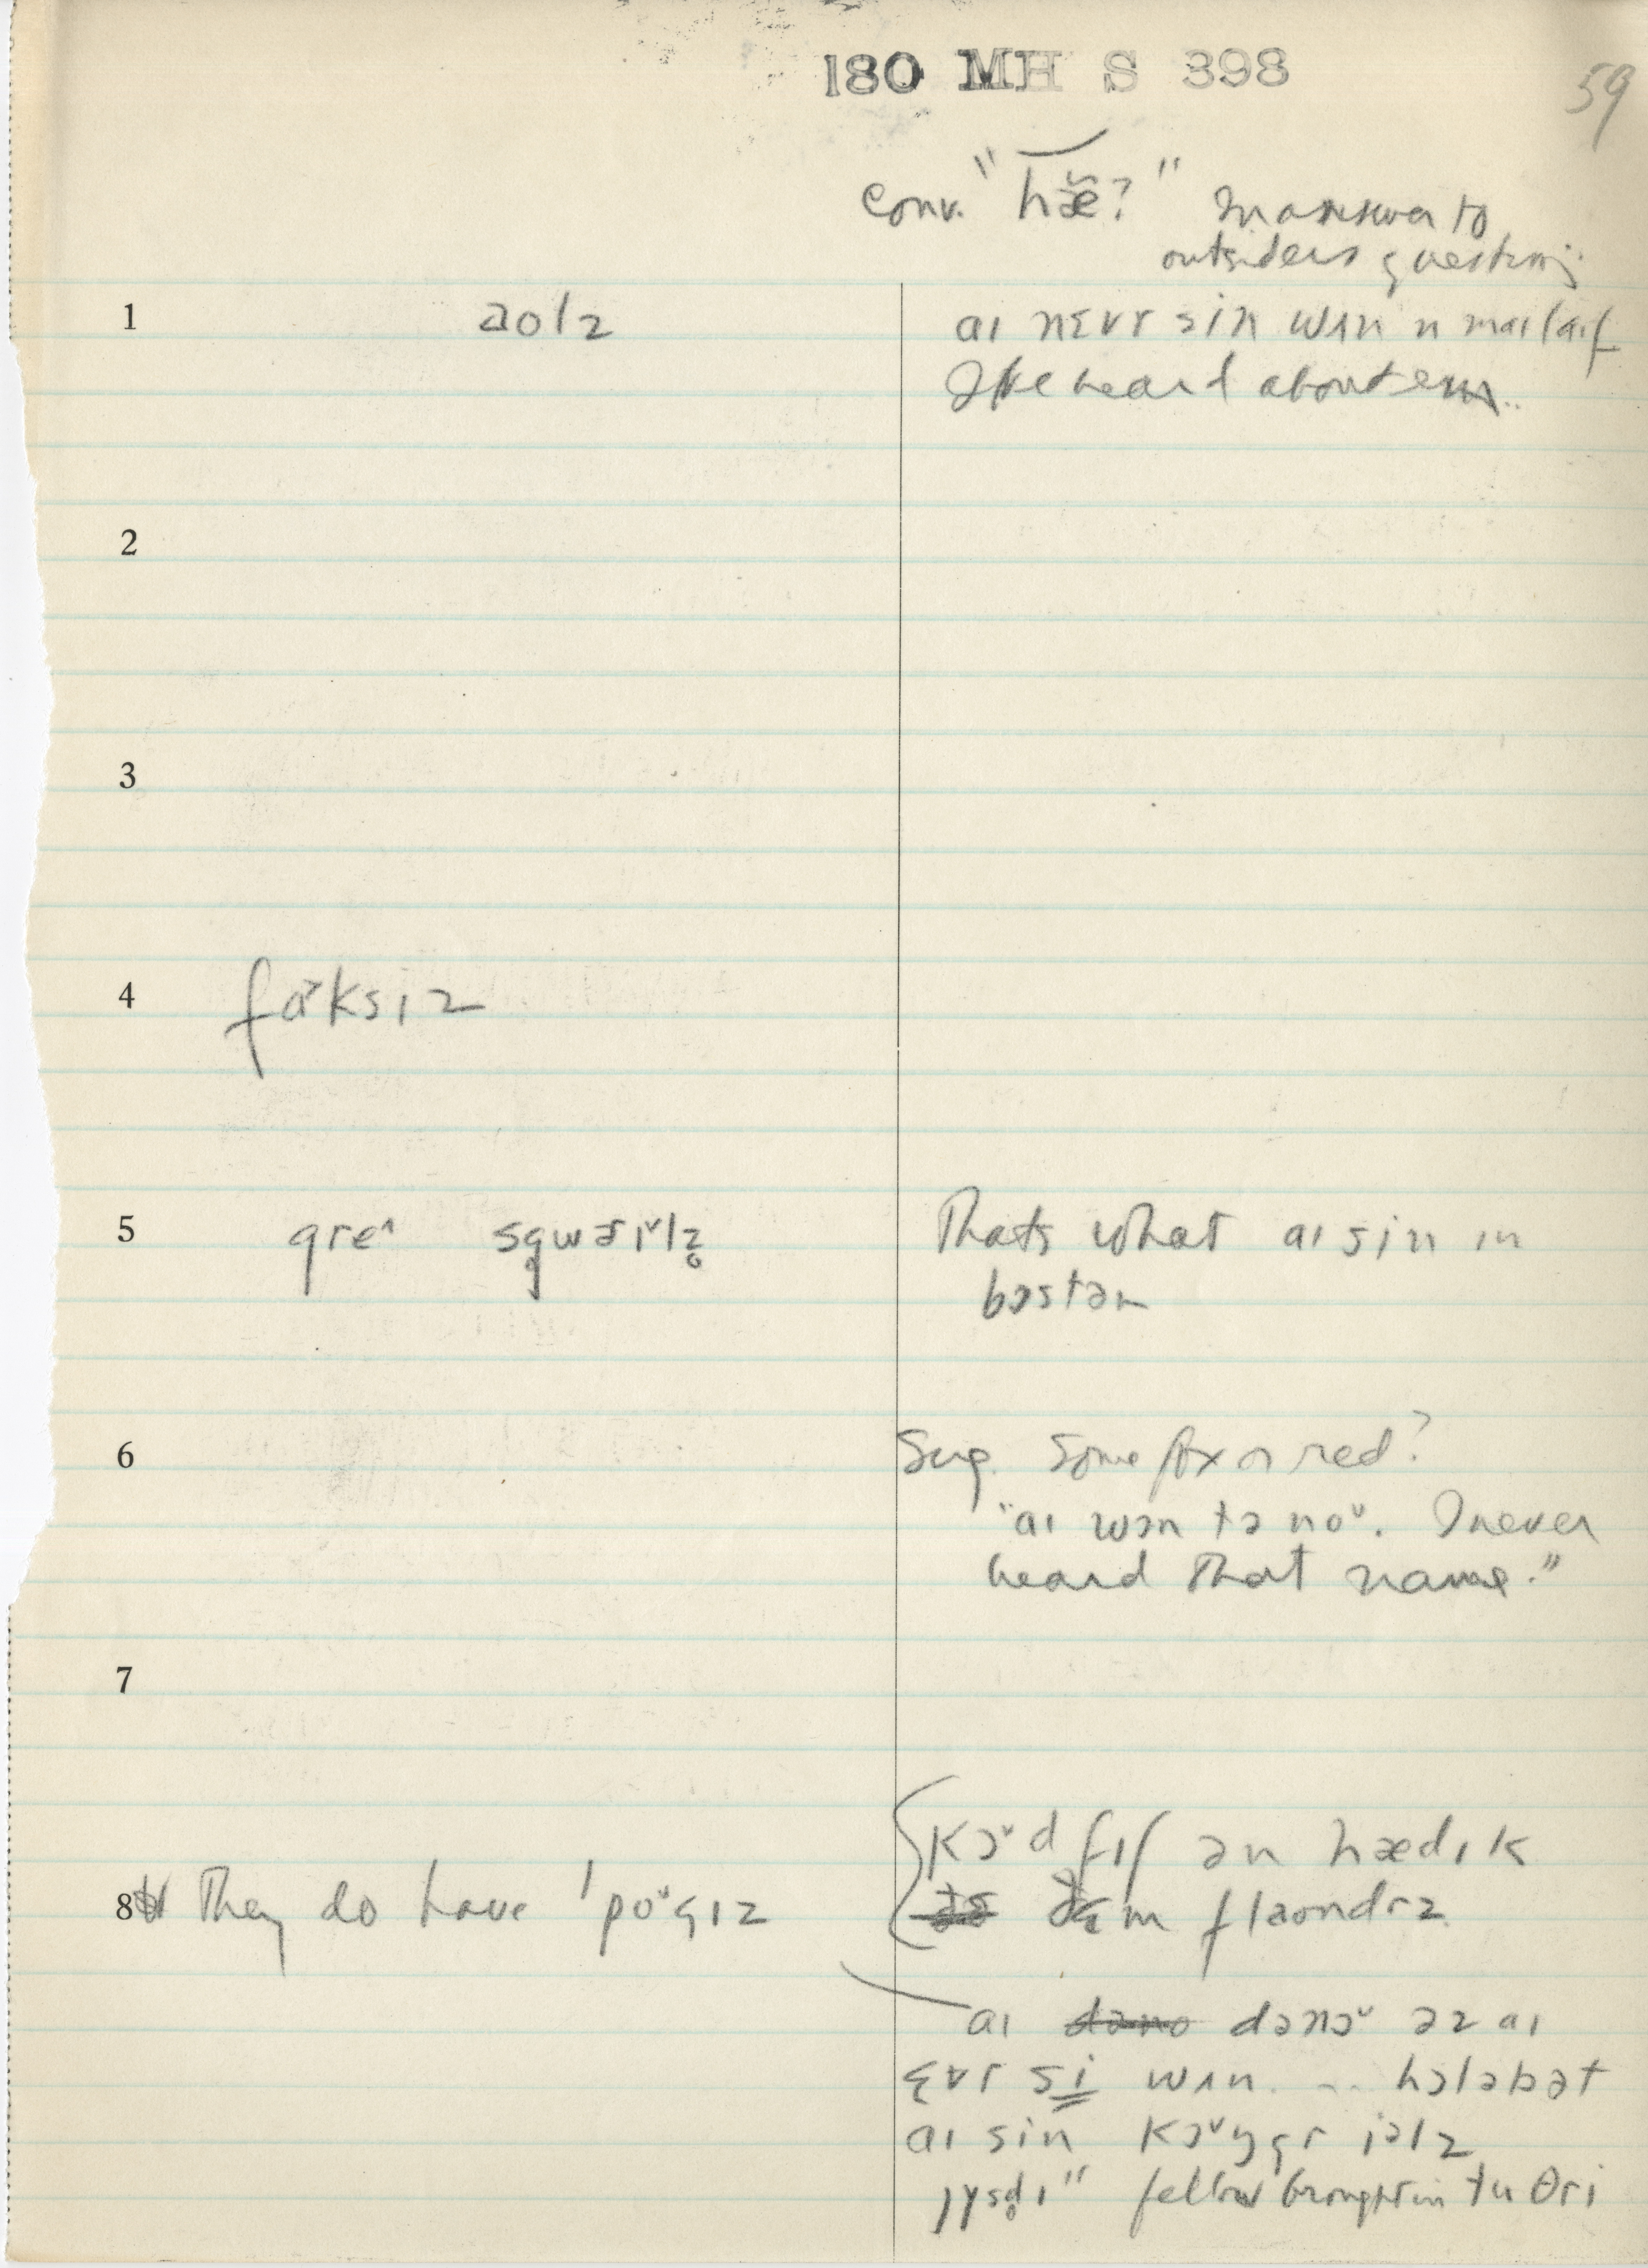 180 MH S 398
59
conv. "hæ̆?" in answer to
outsiders question
1 aolz aɪ nɛvr sin wʌn n maɪ laɪf
I've heard about em..
2
3
4 fɑ˃ksɪz
5 gre^ sgwɜrɪ˅lz̥ Thats what aɪ sin in
bɔstən
6 Sug. Some fox or red?
"aɪ wɔn tə no˅. I never
heard that name."
7
8 They do have ˈpo˅gɪz
kɔ˅d fɪʃ ən hædɪk
ðɛm flaondrz
aɪ dəno dənɔ˅ əz aɪ
ɛvr si wʌn. ... hɔləbət
aɪ sin kɔ˅ŋgr iəlz
jysd̥ɪ" fellow brought in tu θri